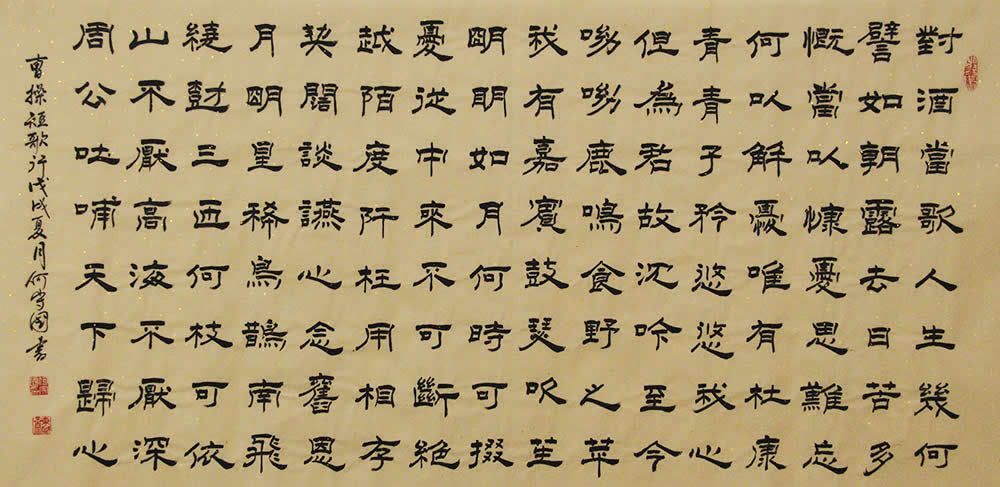 對酒當歌人生幾何
譬如朝露去日苦多
慨當以慷憂思難忘
何以解憂唯有杜康
青青子衿悠悠我心
但為君故沈吟至今
呦呦鹿鳴食野之苹
我有嘉賓鼓瑟吹笙
明明如月何時可掇
憂從中來不可斷絕
越陌度阡枉用相存
契闊談讌心念舊恩
月明星稀烏鵲南飛
繞樹三匝何枝可依
山不厭高海不厭深
周公吐哺天下歸心
曹操短歌行戊戌夏月何守國書